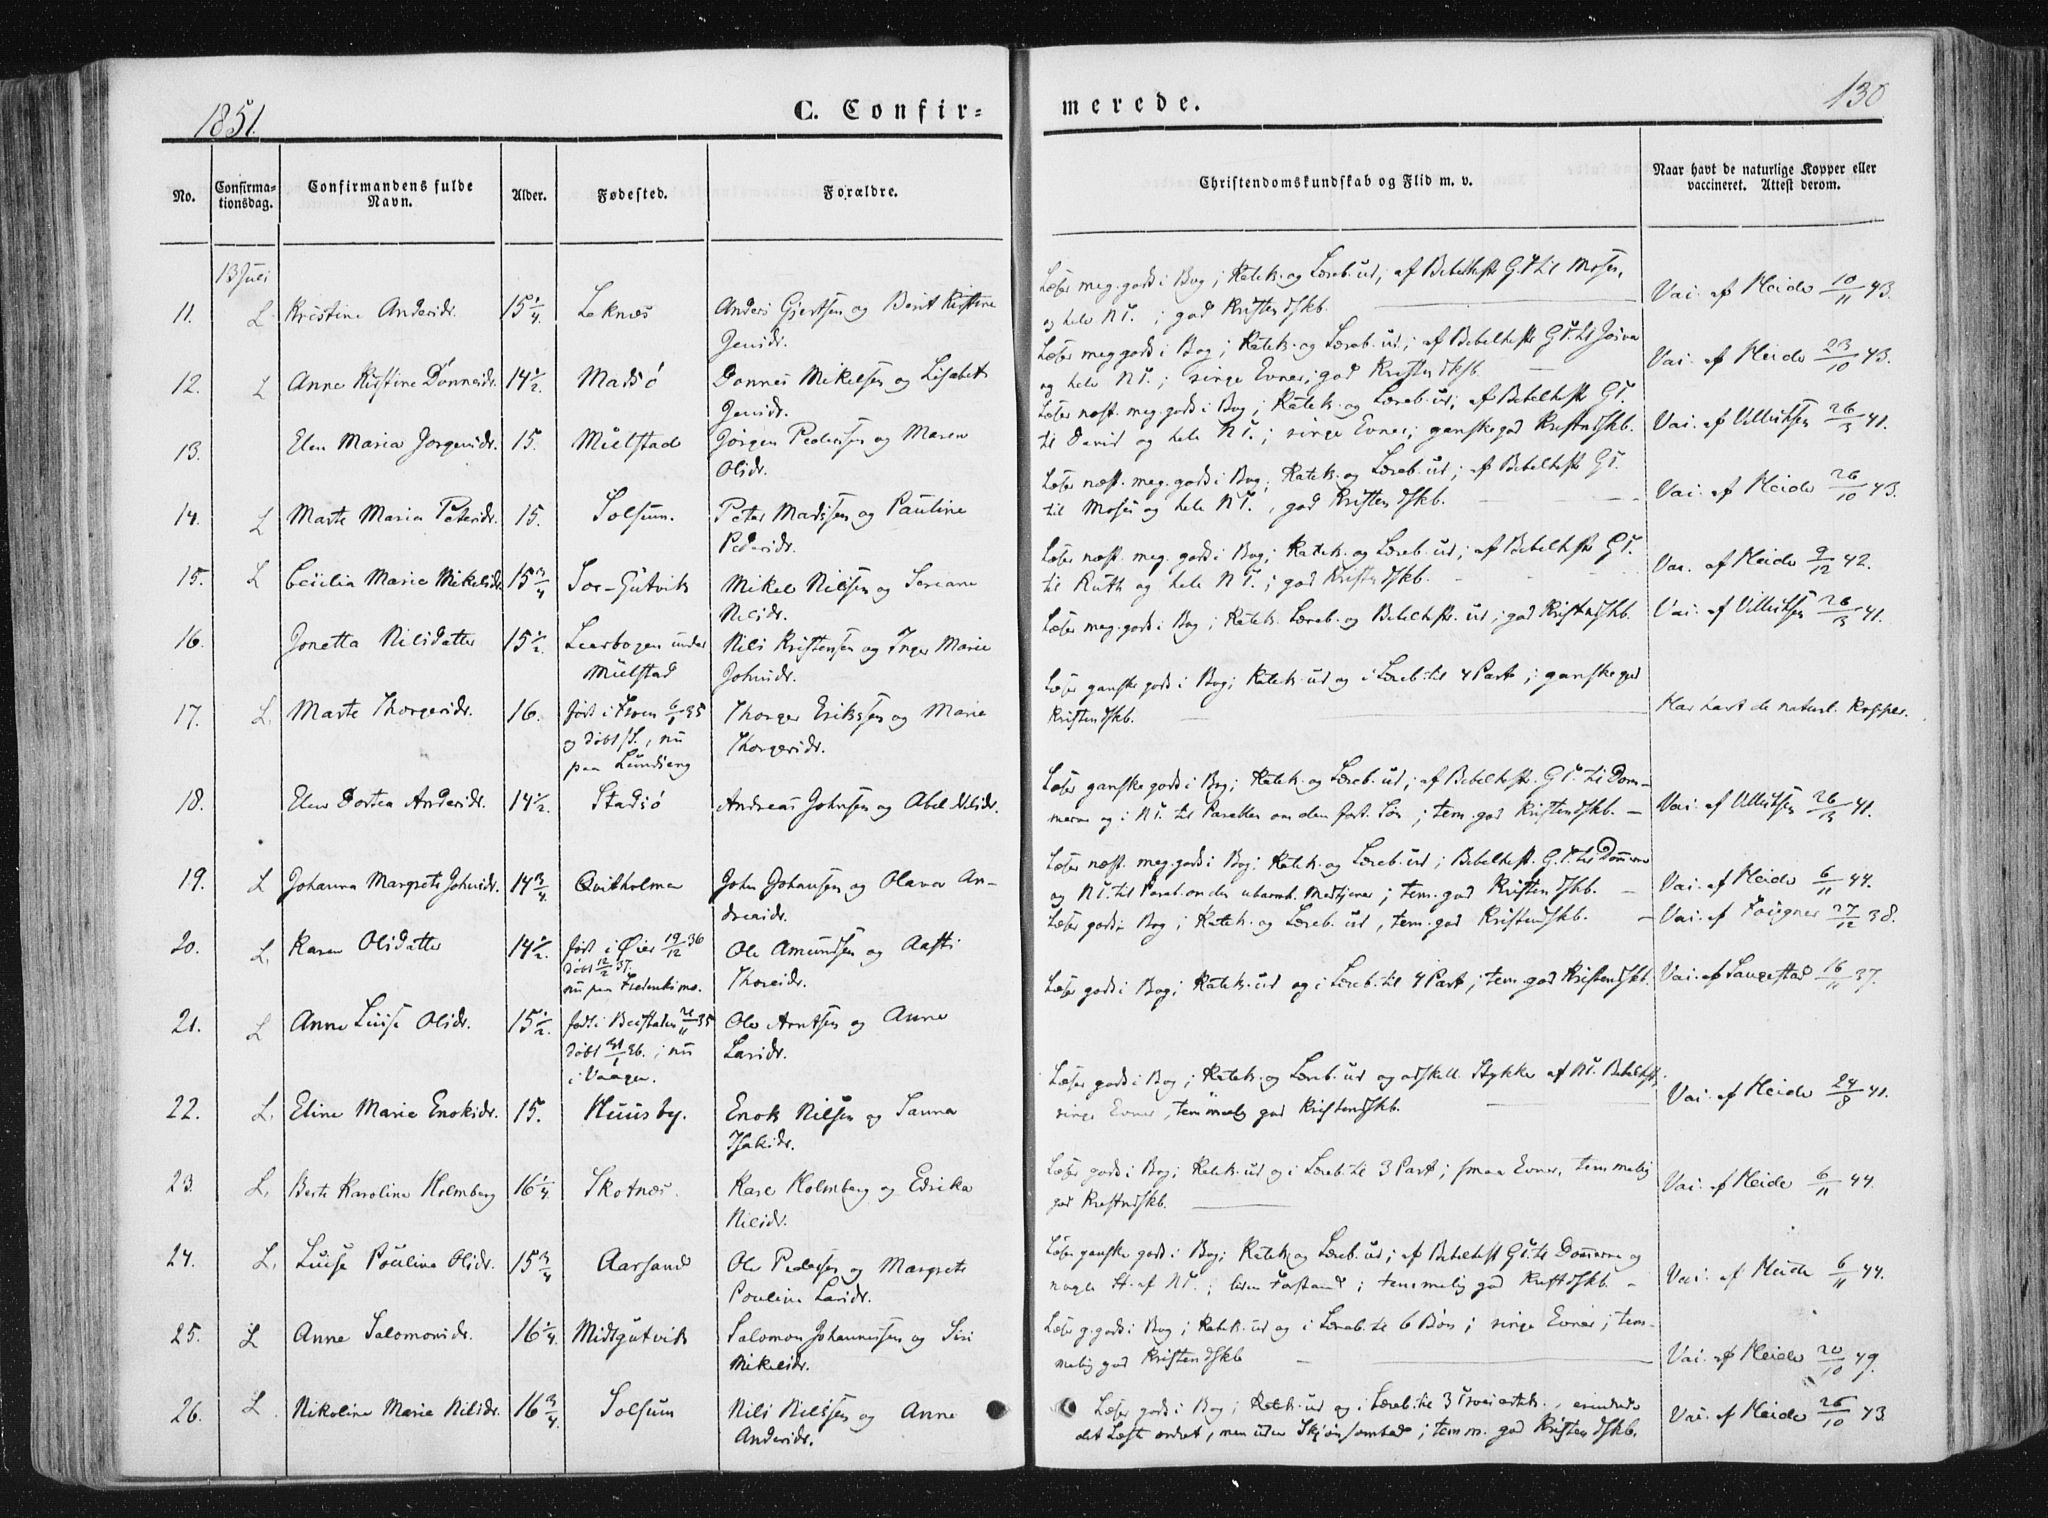 1851.
C. Confir-
merede.
130
No.
Confirma-
tionsdag.
Confirmandens fulde
Navn.
Alder.
Fødested.
Forældre.
Christendomskundskab og Flid m. v.
Naar havt de naturlige Kopper eller
vaccineret. Attest derom.
13 Juli
11. L Kristine Andersdr. 15 1/4. Leknæs Anders Gjertsen og Berit Kirstine
Jensdr.
Læser meg. godt i Bog; Katek. og Læreb. ud; af Bibelhist. G.T. til Moses,
og hele N.T.; god Kristendskb.
Vac. af Heide 10/11 43.
12. L Anne Kirstine Dønnesdr. 14 1/2. Madsø Dønnes Mikelsen og Lisabet
Jensdr.
Læser meg. godt i Bog; Katek. og Læreb. ud; af Bibelhist. G.T. til Josva
og hele N.T.; ringe Evner; god Kristendskb.
Vac. af Heide 23/10 43.
13. Elen Maria Jørgensdr. 15. Mulstad Jørgen Pedersen og Maren
Olsdr.
Læser næst. meg. godt i Bog; Katek. og Læreb. ud; af Bibelhist. G.T.
til David og hele N.T.; ringe Evner; ganske god Kristendskb.
Vac. af Ulrichsen 26/3 41.
14. L Marte Maria Petersdr. 15. Solsum. Peter Madssen og Pauline
Pedersdr.
Læser næst. meg. godt i Bog; Katek. og Læreb. ud; af Bibelhist. G.T.
til Moses og hele N.T., god Kristendskb.
Vac. af Heide 26/10 43.
15. L Cecilia Marie Mikelsdr. 15 3/4 Sør-Gutvik Mikel Nilssen og Seriane
Nilsdr.
Læser næst. meg. godt i Bog; Katek. og Læreb. ud; af Bibelhist. G.T.
til Ruth og hele N.T.; god Kristendskb.
Vac. af Heide 9/12 42.
16. Jonetta Nilsdatter 15 1/2. Leerbogen under
Mulstad
Nils Kristensen og Inger Marie
Johnsdr.
Læser meg. godt i Bog; Katek. Læreb. og Bibelhist. ud; god Kristendskb.
Vac. af Ulrichsen 26/3 41.
17. L. Marte Thorgersdr. 16. født i 6/1 35
og døbt s. S., nu
paa Lundseng
Thorger Erikssen og Marie
Thorgersdr.
Læser ganske godt i Bog; Katek. ud og i Læreb. til 4 Part; ganske god
Kristendskb.
Har havt de naturl. Kopper.
18. Elen Dortea Andersdr. 14 1/2. Stadsø Andreas Johnsen og Abel Nilsdr.
Læser ganske godt i Bog; Katek. og Læreb. ud; af Bibelhist. G.T. til Dom-
merne og i N.T. til Parablen om den fort. Søn; tem. god Kristendskb.
Vac. af Ulrichsen 26/3 41.
19. L Johanna Margrete Johnsdr. 14 3/4 Qvitholmen John Johansen og Olava An-
dreasdr.
Læser næst. meg. godt i Bog; Katek. og Læreb. ud; Bibelhist. G.T. til Dommerne
og N.T. til Parab. om den ubarmh. Medtjener; tem. god Kristendskb.
Vac. af Heide 6/11 44.
20. L. Karen Olsdatter 14 1/2. født i Øier 19/12 36
døbt 12/2 37.
nu paa Frederiksmo.
Ole Amundsen og Aasti
Thoresdr.
Læser godt i Bog; Katek. og Læreb. ud, tem. god Kristendskb.
Vac. af 27/12 38.
21. L Anne Luise Olsdr. 15 1/2. født i Beistaden 35
døbt 36.; nu
i Vaagen.
Ole Arntsen og Anne
Larsdr.
Læser godt i Bog; Katek. ud og i Læreb. til 4 Part; tem. god Kristendskb.
Vac. af Saugestad 16/11 37.
22. L. Eline Marie Enoksdr. 15. Huusby. Enok Nilsen og Sanna
Isaksdr.
Læser godt i Bog; Katek. og Læreb. ud og adskill. Stykker af N.T. Bibelhist.
ringe Evner, temmelig god Kristendskb.
Vac. af Heide 24/8 41.
23. L. Berte Karoline Holmberg 16 1/4. Skotnæs. Karl Holmberg og Edrika
Nilsdr.
Læser godt i Bog; Katek. ud og i Læreb. til 3 Part; smaa Evner, temmelig
god Kristendskb.
Vac. af Heide 6/11 44.
24. L. Luise Pouline Olsdr. 15 3/4 Aarsand Ole Pedersen og Margrete
Pouline Larsdr.
Læser ganske godt i Bog; Katek. og Læreb. ud; af Bibelhist. G.T. til Dommerne og
nogle St. af N.T.; liden Forstand; temmelig god Kristdskb.
Vac. af Heide 6/11 44.
25. L Anne Salomonsdr. 16 1/4. Midtgutvik Salomon Johannessen og Siri
Mikelsdr.
Læser g. godt i Bog; Katek. ud og i Læreb. til 6 Bøn; ringe Evner; tem-
melig god Kristendskb
Vac. af Heide 20/10 49.
26. L. Nikoline Marie Nilsdr. 16 3/4. Solsum Nils Nilssen og Anne
Andersdr.
Læser godt i Bog; Katek. ud og i Læreb. til 3 Troesartik., erindrede
det Læste ordret, men uden Skjønsomhed; temm. god Kristendskb.
Vac. af Heide 26/10 43